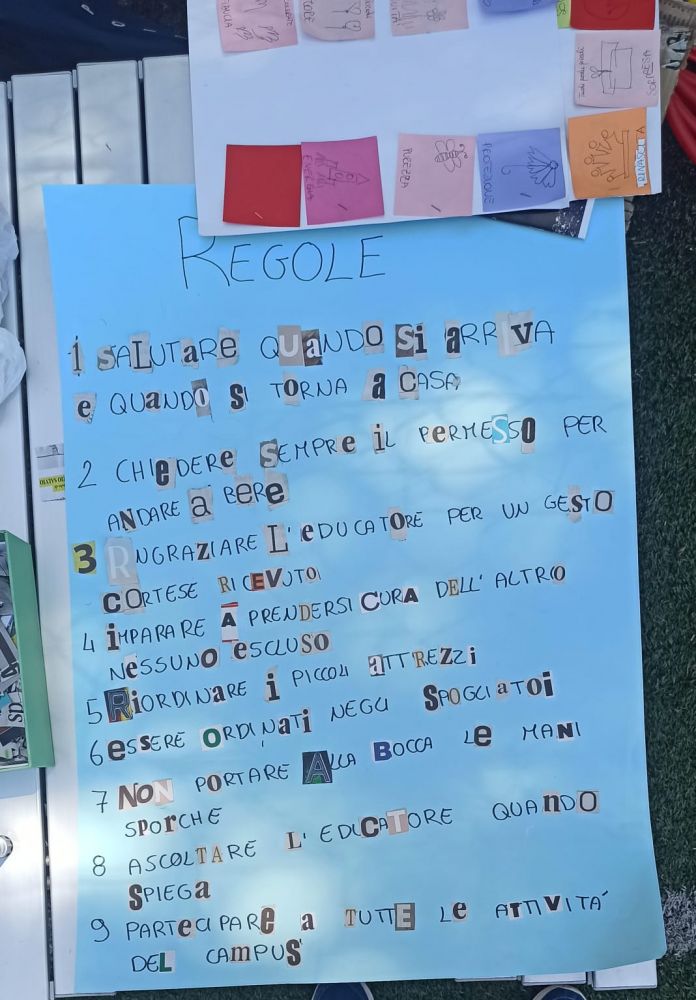 SORPRESA
ENERGIA
PUREZZA
PROTEZIONE
RINASCITA
REGOLE
1 SALUTARE QUANDO Si ARRIVA
e QUANDO SI TORNA a CASA
2 CHIEDERE SEMPRE iL PERMESSO PER
ANDARE a BERE
3 RINGRAZIARE L'EDUCATORE PER UN GESTO
CORTESE RICEVUTO
4 iMPARARE A PRENDERSI CURA DELL'ALTRO
NESSUNO ESCLUSO
5 RIORDINARE i PICCOLI ATTREZZi
6 eSSERE ORDINATi NEGLI SPOGLIATOi
7 NON PORTARE ALLA BOCCA LE MANI
SPORCHE
8 ASCOLTARE L'EDUCATORE QUANDO
SPIEGA
9 PARTECIPARE a TUTTE LE ATTIVITA'
DEL CAMPUS